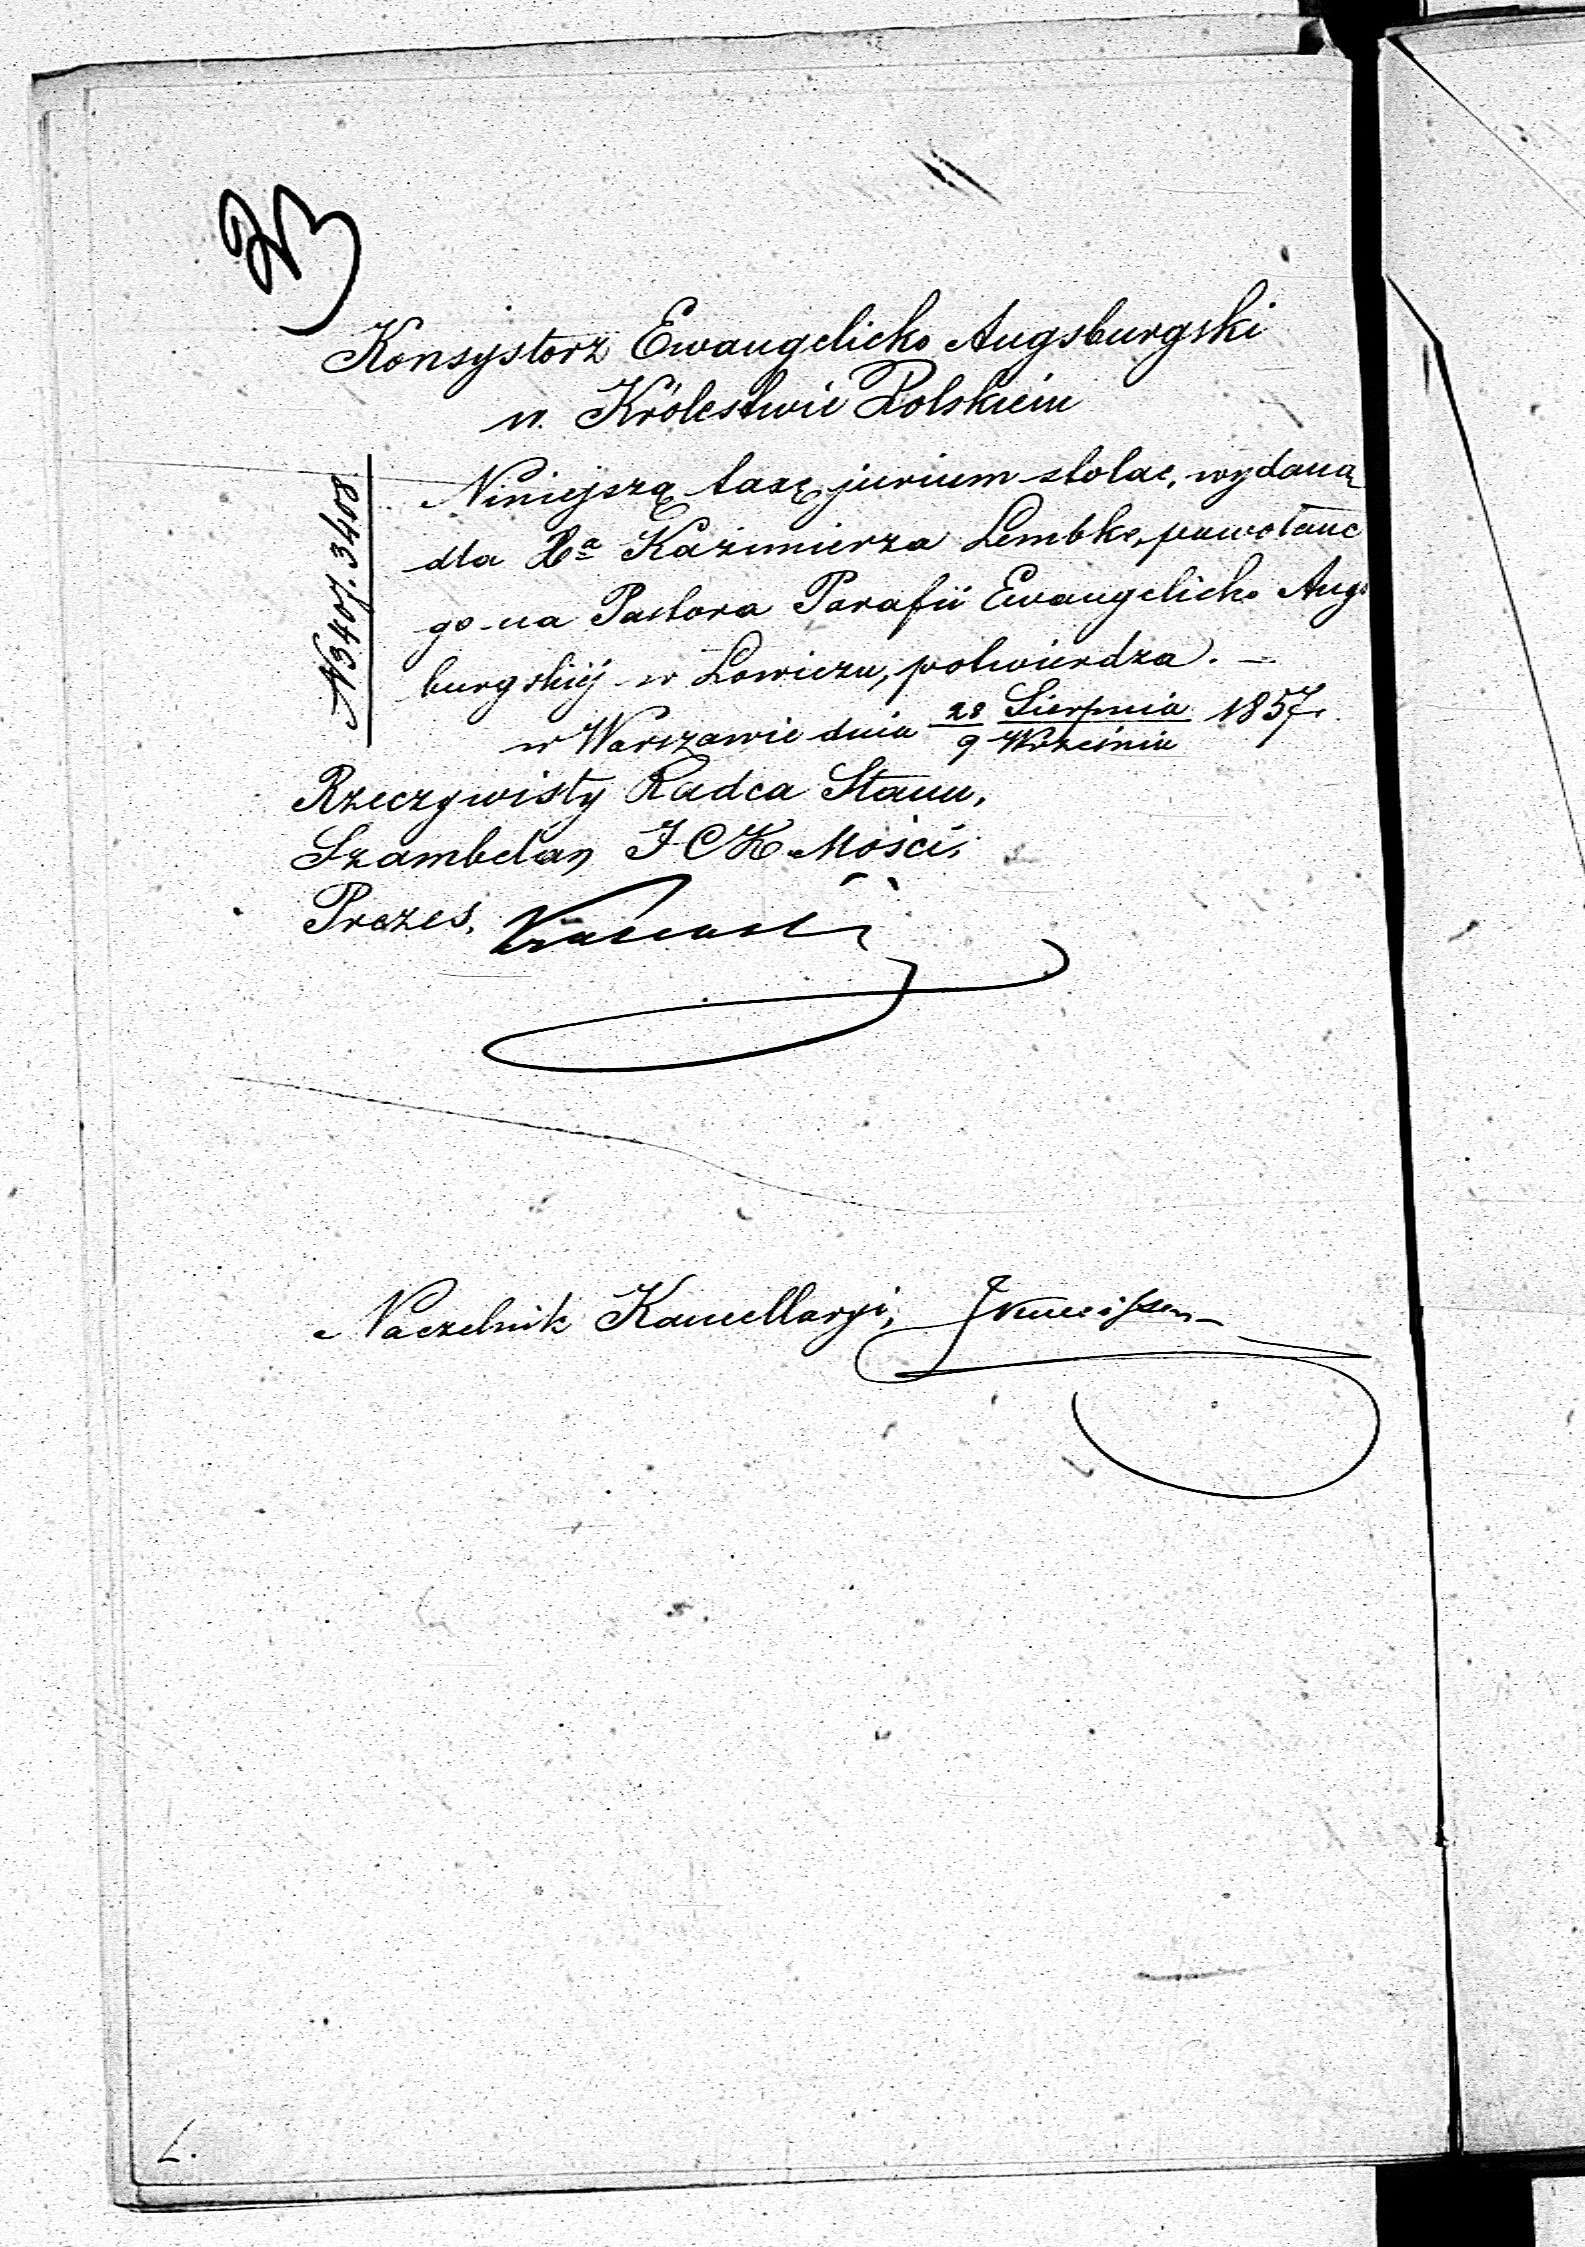 Konsystorz Ewangelicko Augsburgski
w Królestwie Polskiem
N 3407/3408
Niniejszą taxę jurium stolae, wydaną
dla Xa Kazimierza Lembke, powołane
go na Pastora Parafii Ewangelicko Augs
burgskiéj w Łowiczu, potwierdza. —
w Warszawie dnia 28 Sierpnia / 9 Września 1857 r.
Rzeczywisty Radca Stanu,
Szambelan JCK Mości,
Prezes,
Naczelnik Kancellaryi,